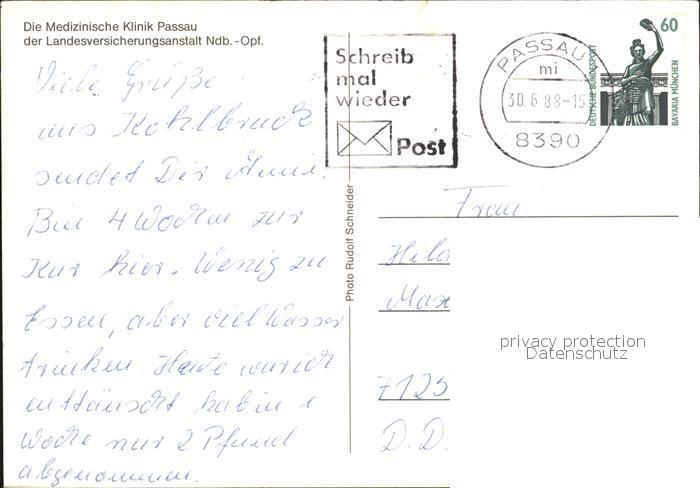 Die Medizinische Klinik Passau
der Landesversicherungsanstalt Ndb.-Opf.
Viele Grüße
aus Kohlbruck
sendet Dir Anni.
Bin 4 Wochen zur
Kur hier. Wenig zu
Essen, aber viel Wasser
trinken. Heute war ich
enttäuscht hab in 1
Woche nur 2 Pfund
abgenommen.
Photo Rudolf Schneider
Schreib
mal
wieder
Post
PASSAU
mi
30.6.88-15
8390
60
DEUTSCHE BUNDESPOST
BAVARIA MÜNCHEN
Frau
Hild
Max
7125
D.D.
privacy protection
Datenschutz